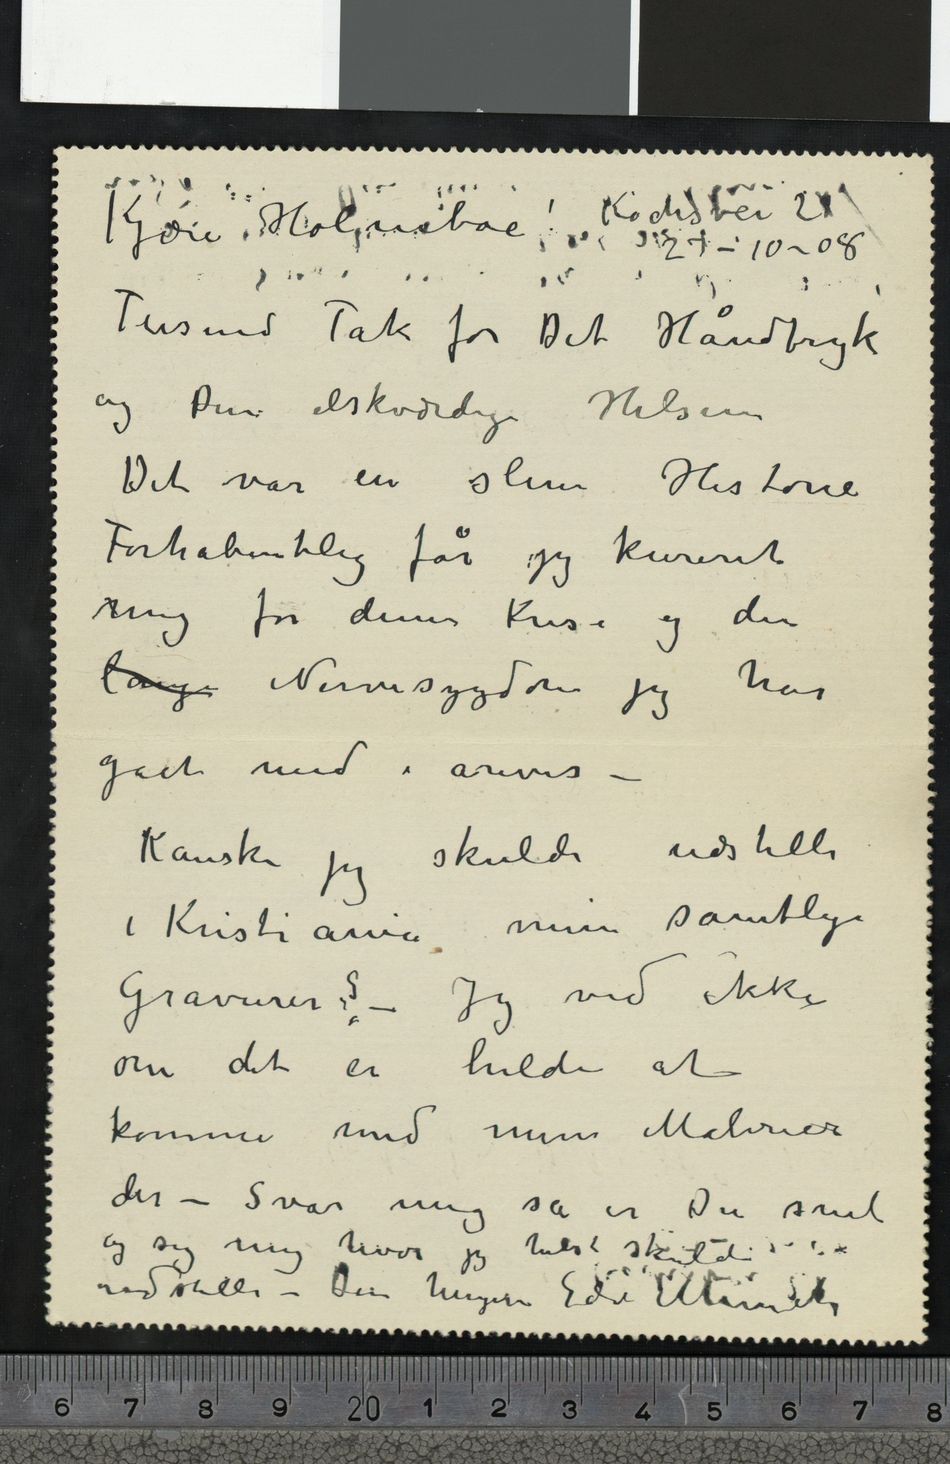 Kjære Holmboe! Kochsvei 21
27–10–08
Tusind Tak for Dit Håndtryk
og Din elskværdige Hilsen
Det var en slem Historie
Forhåbentlig får jeg kureret
mig for denne Krise og den
lange Nervesygdom jeg har
gåt med i årevis –
Kanske jeg skulde udstille
i Kristiania mine samtlige
Gravurer? – Jeg ved ikke
om det er heldi at
komme med mine Malerier
der – Svar mig så er Du snil
og sig mig hvor jeg helst skulde
udstille – Din hengivne Edv Munch
6 7 8 9 20 1 2 3 4 5 6 7 8